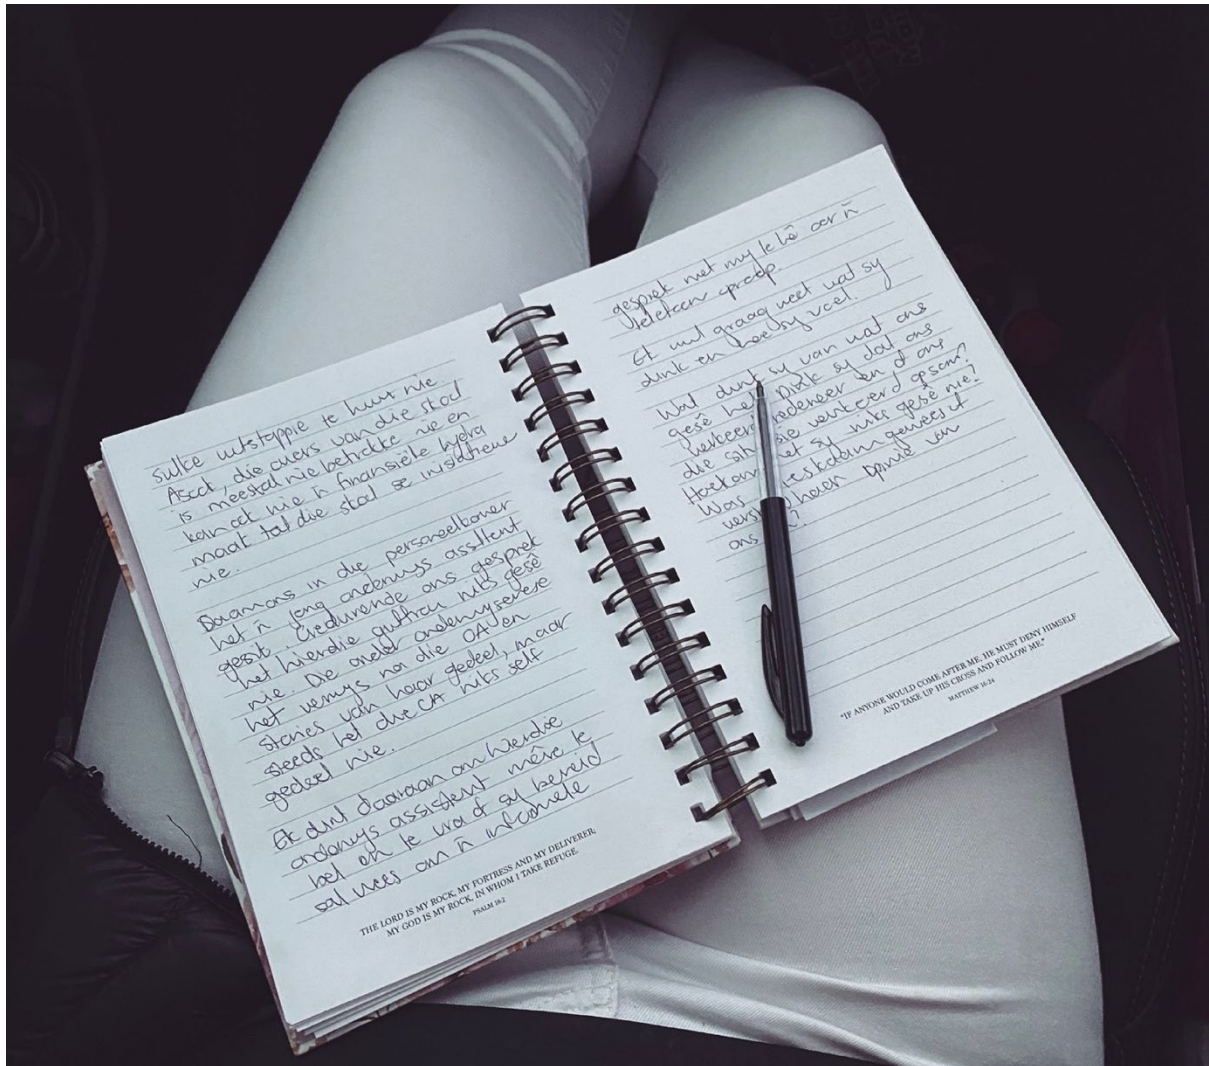 sulke uitstappie te huur nie.
Ascot, die ouers van die skool
is meestal nie betrokke nie en
kan ook nie 'n finansiële bydra
maak tot die skool se inisiatiewe
nie.
Daar ons in die personeelkamer
het 'n jong onderwys assistent
gesit. Gedurende ons gesprek
het hierdie juffrou niks gesê
nie. Die ander onderwyseresse
het verwys na die OA en
stories van haar gedeel, maar
steeds het die OA niks self
gedeel nie.
Ek dink daaraan om hierdie
onderwys assistent môre te
bel en te vra of sy bereid
sal wees om 'n informele
THE LORD IS MY ROCK, MY FORTRESS AND MY DELIVERER;
MY GOD IS MY ROCK, IN WHOM I TAKE REFUGE.
PSALM 18:2
gesprek met my te hê oor 'n
telefoon oproep.
Ek wil graag weet wat sy
dink en hoe sy voel.
Wat dink sy van wat ons
gesê het? Dink sy dat ons
verkeerd redeneer en of ons
die situasie verkeerd opsom?
Hoekom het sy niks gesê nie?
Was sy skaam gewees of
verskil haar opinie van
ons
"IF ANYONE WOULD COME AFTER ME, HE MUST DENY HIMSELF
AND TAKE UP HIS CROSS AND FOLLOW ME."
MATTHEW 16:24